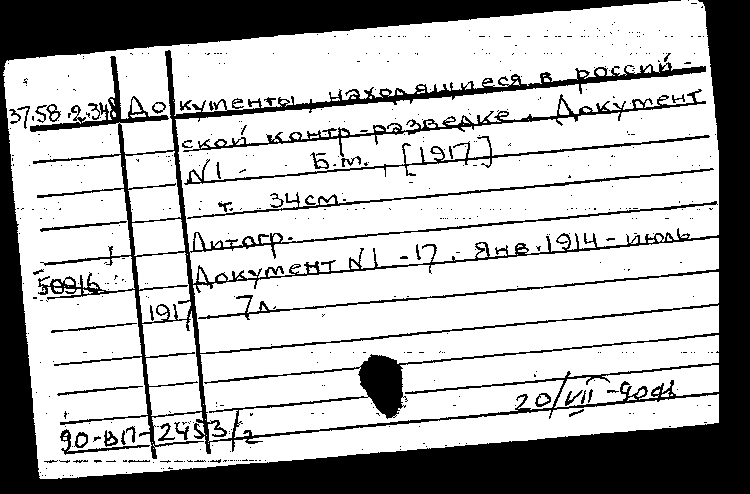 37.58.2.348 Документы, находящиеся в россий-
ской контр-разведке. Документ
N1 - Б.м., [1917]
т. 34см.
Литогр.
Документ N1-17. Янв. 1914 - июль
50916
1917. 7л.
20/VII-90
90-ВП-2453/2